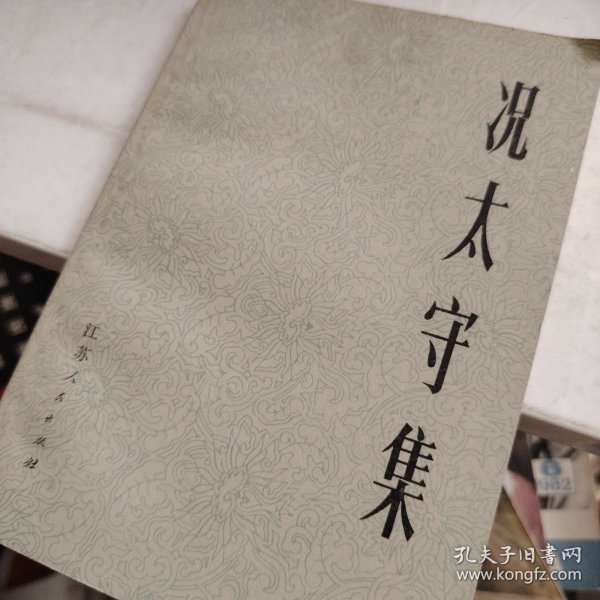 况太守集
江苏人民出版社
8
1982
孔夫子旧书网
www.kongfz.com